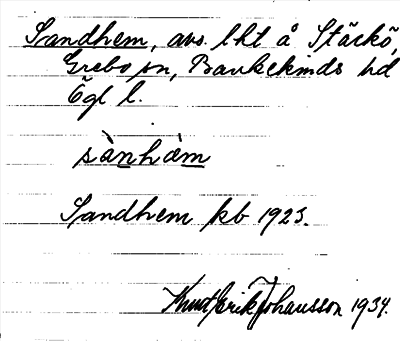 Sandhem, avs. lht å Stäckö,
Grebo sn, Bankekinds hd
Ögl l.
sànhàm
Sandhem kb 1923.
Knut Erik Johansson 1934.